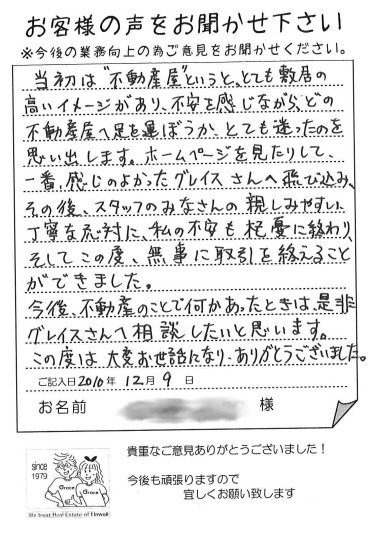 お客様の声をお聞かせ下さい
※今後の業務向上の為ご意見をお聞かせください。
当初は"不動産屋"というと、とても敷居の
高いイメージがあり、不安を感じながら、どの
不動産屋へ足を運ぼうか、とても迷ったのを
思い出します。ホームページを見たりして、
一番、感じのよかったグレイスさんへ飛び込み、
その後、スタッフのみなさんの親しみやすい、
丁寧な応対に、私の不安も杞憂に終わり、
そしてこの度、無事に取引を終えること
ができました。
今後、不動産のことで何かあったときは、是非
グレイスさんへ相談したいと思います。
この度は大変お世話になり、ありがとうございました。
ご記入日2010年12月9日
お名前 様
貴重なご意見ありがとうございました！
今後も頑張りますので
宜しくお願い致します
since
1979
Grace
Grace
We trust Real Estate of Hawaii